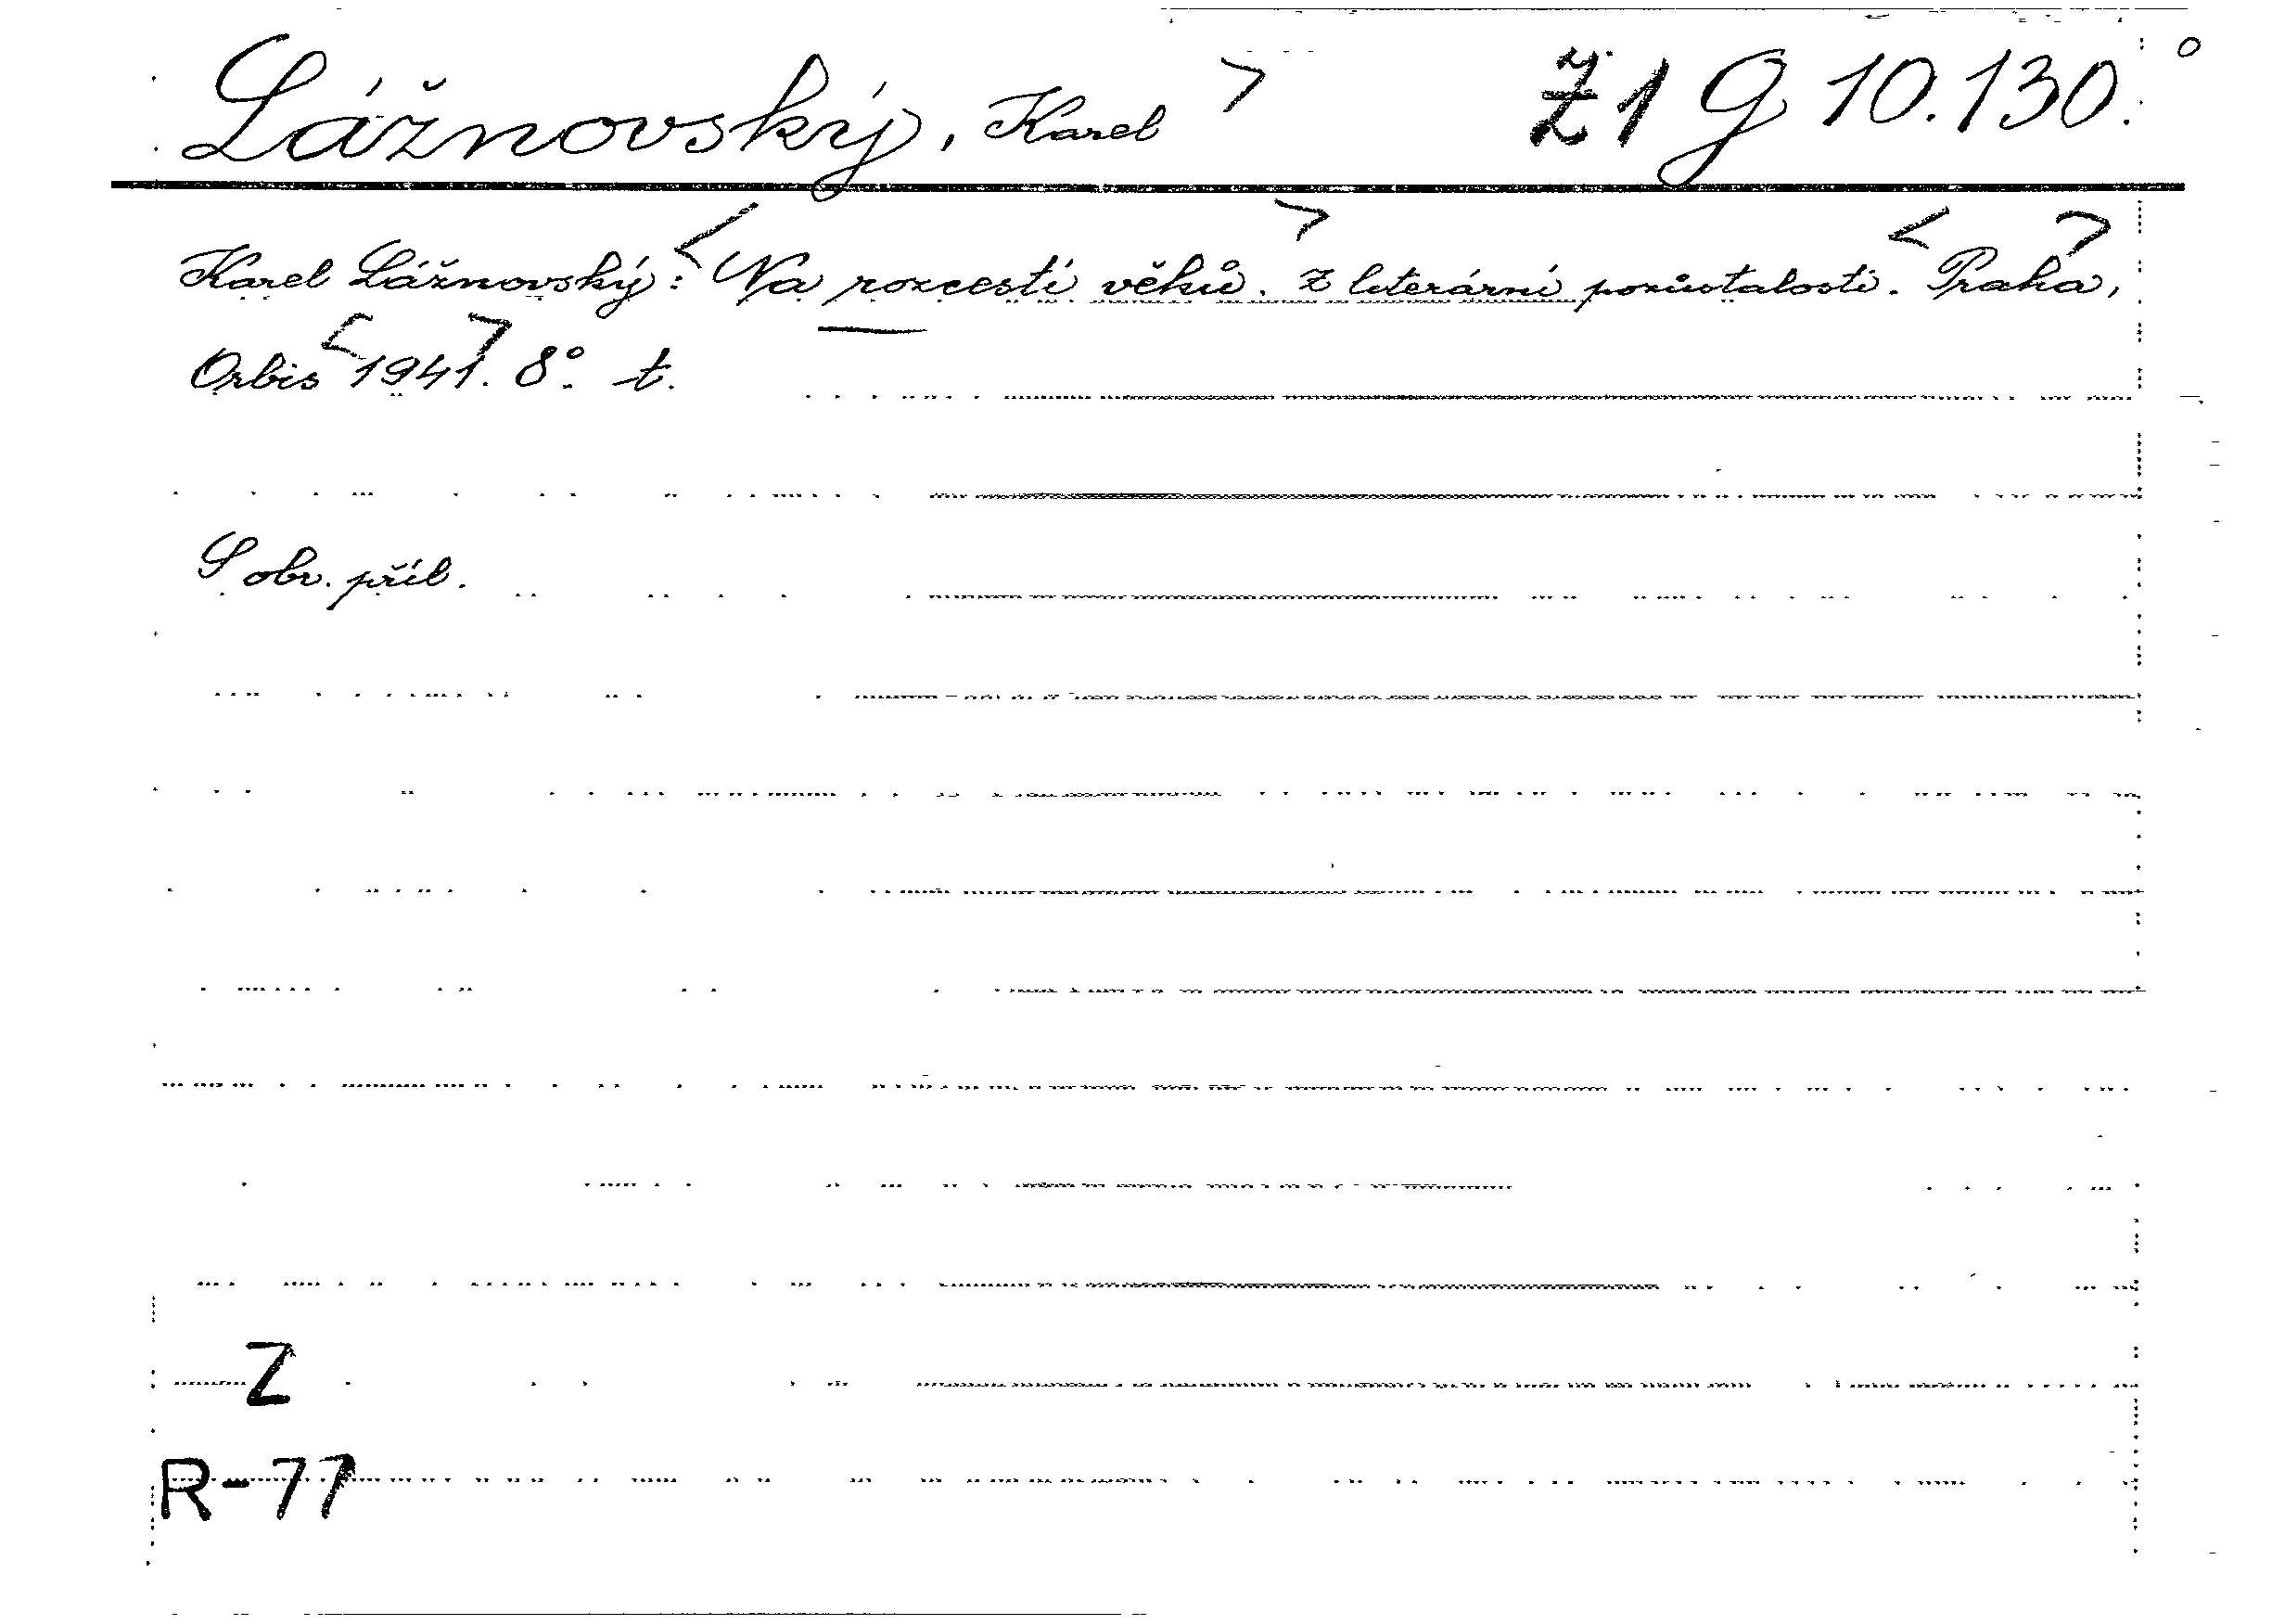 Lážnovský, Karel > Z1 G 10.130.
Karel Lážnovský: <Na rozcestí věků.> Z literární pozůstalosti. <Praha>,
Orbis <1941>. 8°. t.
S obr. příl.
Z
R-77